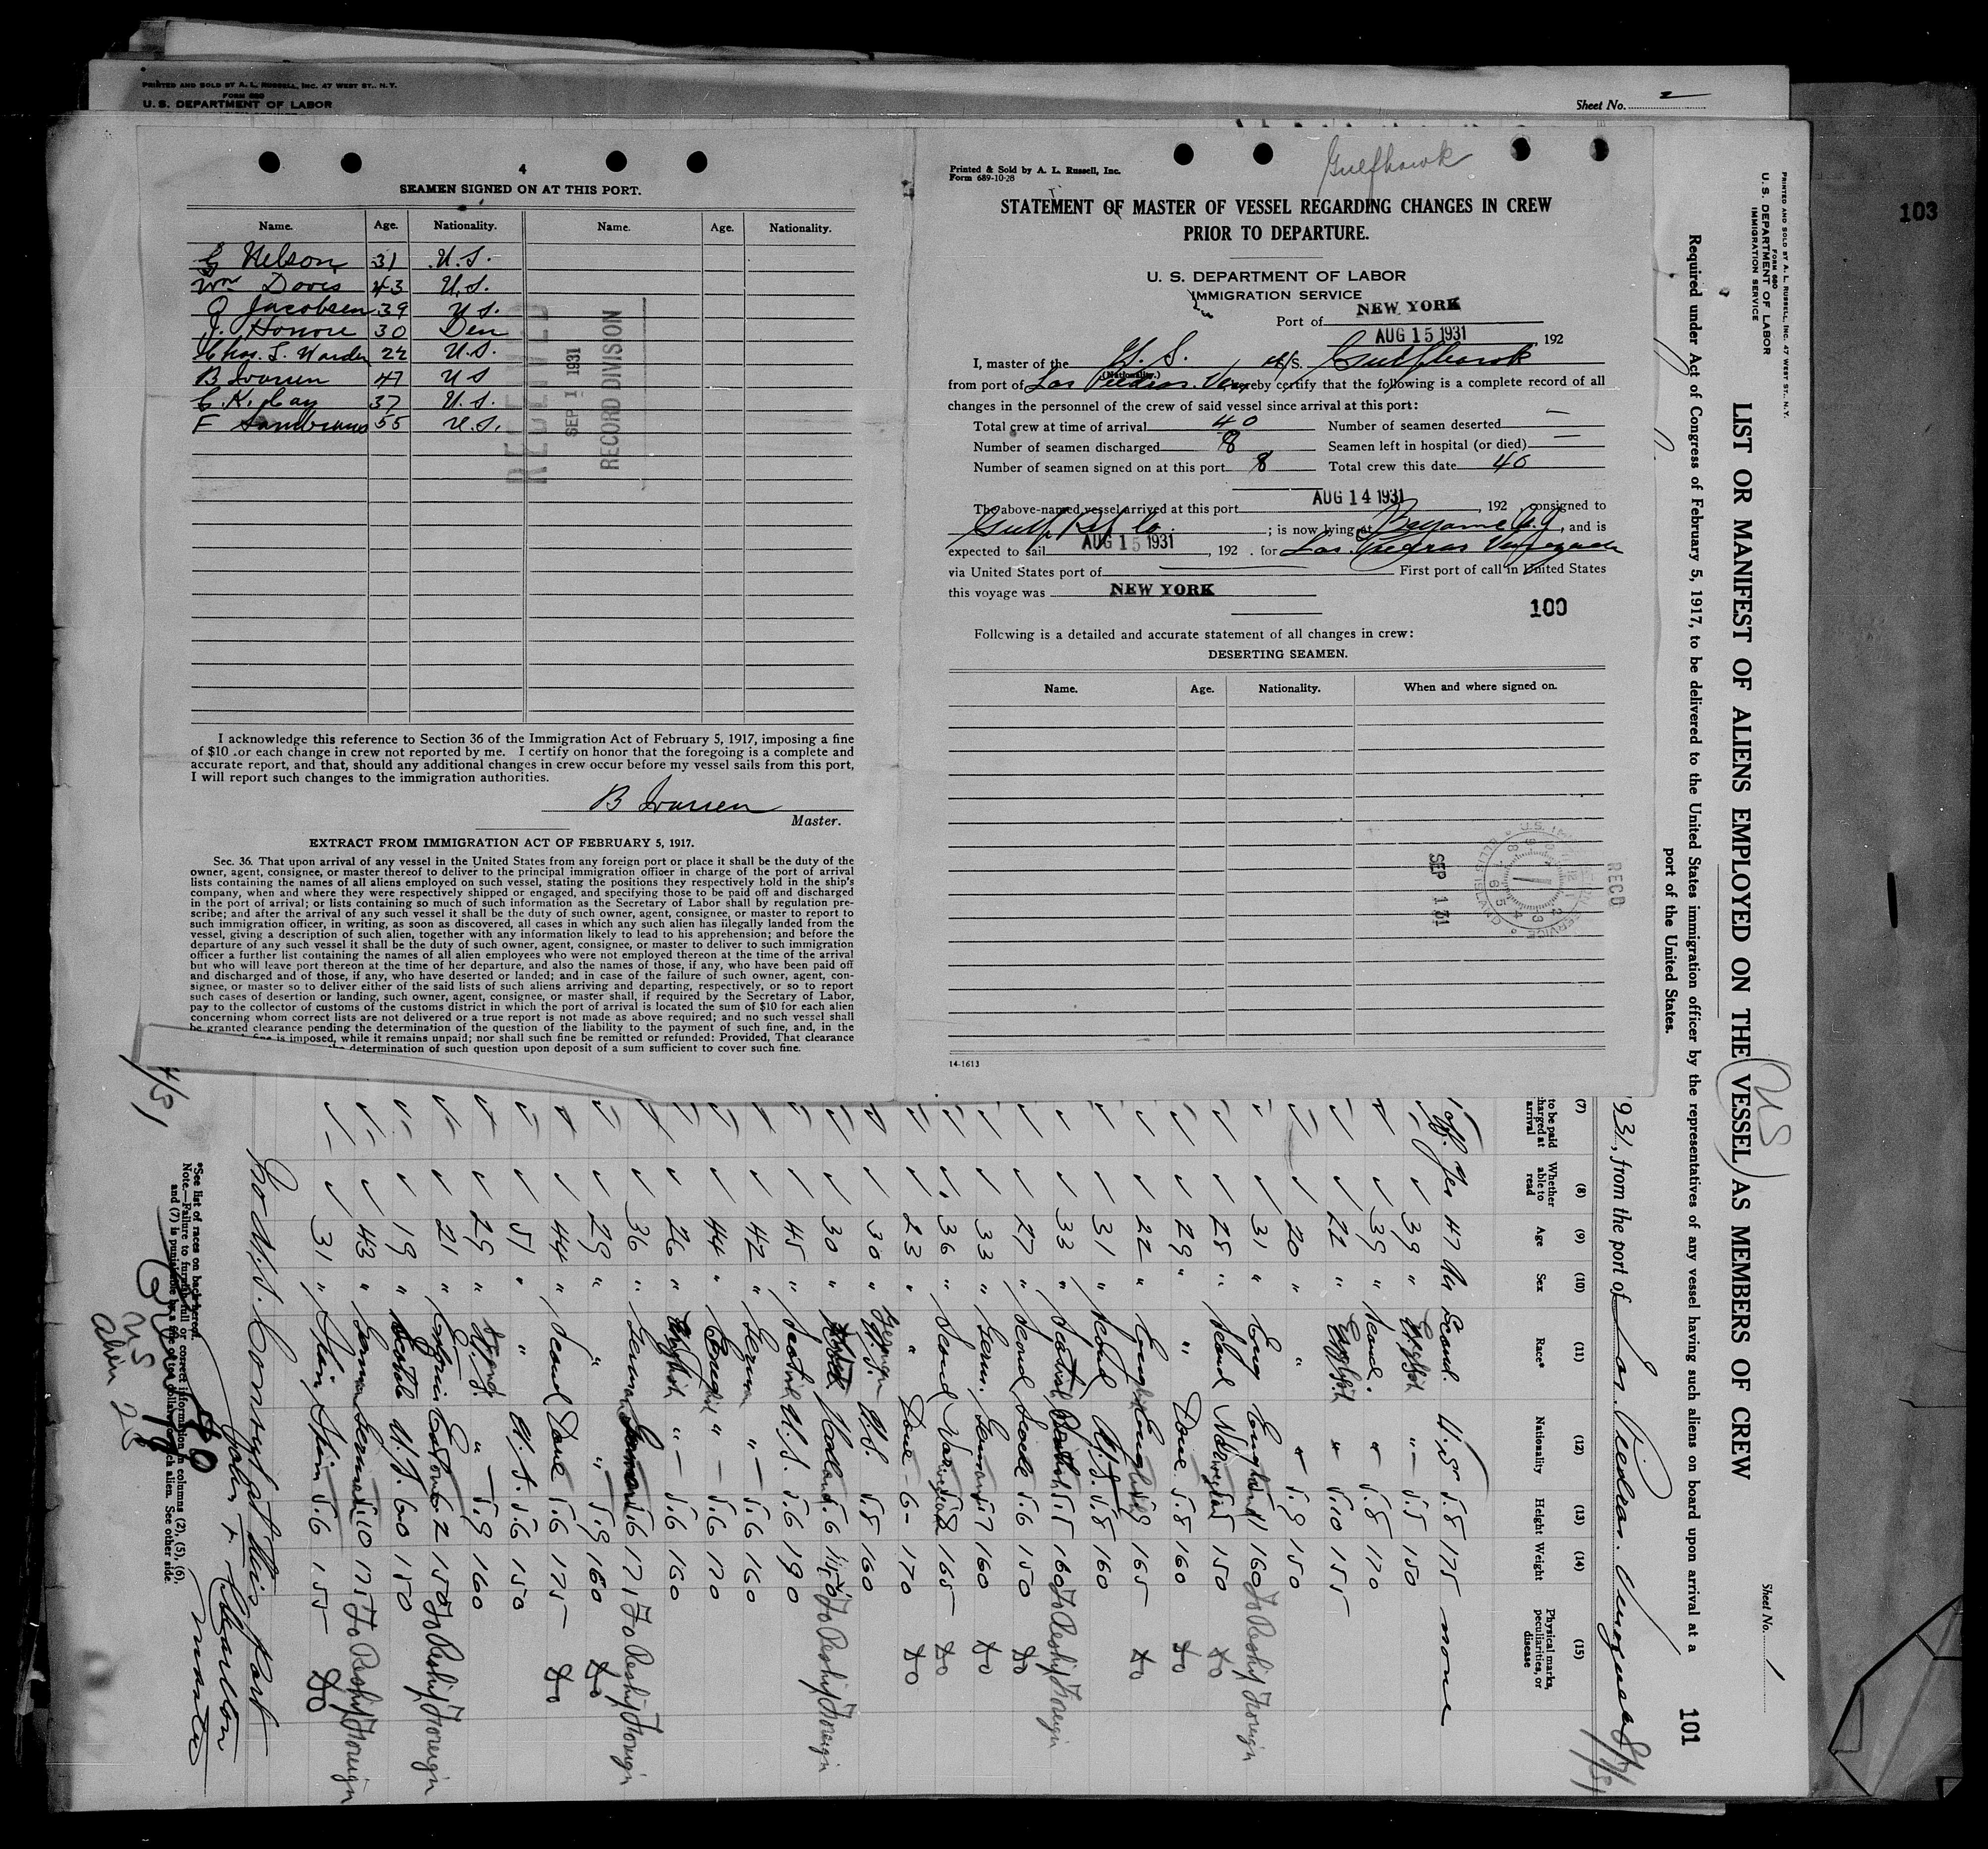 PRINTED AND SOLD BY A. L. RUSSELL, INC. 47 WEST ST., N.Y.
FORM 680
U. S. DEPARTMENT OF LABOR
Sheet No. 2
103
4
SEAMEN SIGNED ON AT THIS PORT.
Name. Age. Nationality. Name. Age. Nationality.
G Nelson 31 U.S.
Wm Davis 43 U.S.
O Jacobsen 39 U.S.
J. Honore 30 Den
Chas. L. Warden 22 U.S.
B Iversen 47 U S
C. K. Kay 37 U.S.
F 55 U.S.
RECEIVED
SEP 1 1931
RECORD DIVISION
I acknowledge this reference to Section 36 of the Immigration Act of February 5, 1917, imposing a fine
of $10 .or each change in crew not reported by me. I certify on honor that the foregoing is a complete and
accurate report, and that, should any additional changes in crew occur before my vessel sails from this port,
I will report such changes to the immigration authorities.
B Iversen
Master.
EXTRACT FROM IMMIGRATION ACT OF FEBRUARY 5, 1917.
Sec. 36. That upon arrival of any vessel in the United States from any foreign port or place it shall be the duty of the
owner, agent, consignee, or master thereof to deliver to the principal immigration officer in charge of the port of arrival
lists containing the names of all aliens employed on such vessel, stating the positions they respectively hold in the ship's
company, when and where they were respectively shipped or engaged, and specifying those to be paid off and discharged
in the port of arrival; or lists containing so much of such information as the Secretary of Labor shall by regulation pre-
scribe; and after the arrival of any such vessel it shall be the duty of such owner, agent, consignee, or master to report to
such immigration officer, in writing, as soon as discovered, all cases in which any such alien has illegally landed from the
vessel, giving a description of such alien, together with any information likely to lead to his apprehension; and before the
departure of any such vessel it shall be the duty of such owner, agent, consignee, or master to deliver to such immigration
officer a further list containing the names of all alien employees who were not employed thereon at the time of the arrival
but who will leave port thereon at the time of her departure, and also the names of those, if any, who have been paid off
and discharged and of those, if any, who have deserted or landed; and in case of the failure of such owner, agent, con-
signee, or master so to deliver either of the said lists of such aliens arriving and departing, respectively, or so to report
such cases of desertion or landing, such owner, agent, consignee, or master shall, if required by the Secretary of Labor,
pay to the collector of customs of the customs district in which the port of arrival is located the sum of $10 for each alien
concerning whom correct lists are not delivered or a true report is not made as above required; and no such vessel shall
be granted clearance pending the determination of the question of the liability to the payment of such fine, and, in the
fine is imposed, while it remains unpaid; nor shall such fine be remitted or refunded: Provided, That clearance
determination of such question upon deposit of a sum sufficient to cover such fine.
Gulfhawk
Printed & Sold by A. L. Russell, Inc.
Form 689-10-28
STATEMENT OF MASTER OF VESSEL REGARDING CHANGES IN CREW
PRIOR TO DEPARTURE.
U. S. DEPARTMENT OF LABOR
IMMIGRATION SERVICE
Port of NEW YORK
AUG 15 1931 192
I, master of the U.S. M/S. Gulfhawk
(Nationality.)
from port of Las Piedras Ven hereby certify that the following is a complete record of all
changes in the personnel of the crew of said vessel since arrival at this port:
Total crew at time of arrival 40 Number of seamen deserted —
Number of seamen discharged 8 Seamen left in hospital (or died) —
Number of seamen signed on at this port 8 Total crew this date 40
The above-named vessel arrived at this port AUG 14 1931, 192 , consigned to
Gulf Ref Co ; is now lying at Bayonne N.J, and is
expected to sail AUG 15 1931, 192 . for Las Piedras Venezuela
via United States port of First port of call in United States
this voyage was NEW YORK
100
Following is a detailed and accurate statement of all changes in crew:
DESERTING SEAMEN.
Name. Age. Nationality. When and where signed on.
RECD
SEP 1 31
14-1613
PRINTED AND SOLD BY A. L. RUSSELL, INC. 47 WEST ST., N.Y.
FORM 680
U. S. DEPARTMENT OF LABOR
IMMIGRATION SERVICE
Sheet No. 1
LIST OR MANIFEST OF ALIENS EMPLOYED ON THE VESSEL AS MEMBERS OF CREW
US
101
Required under Act of Congress of February 5, 1917, to be delivered to the United States immigration officer by the representatives of any vessel having such aliens on board upon arrival at a
port of the United States.
931, from the port of Las Piedras. Venezuela
(7) (8) (9) (10) (11) (12) (13) (14) (15)
to be paid
arrival
Whether able to read
Age
Sex
Race*
Nationality
Height
Weight
Physical marks, peculiarities, or disease
Yes 47 Scand. 5.8 175 none
39 " 5.5 150
39 " Scand. " 5.8 170
22 " " 5.10 155
20 " " " 5.9 150
31 " Eng 160 To Reship Foreign
28 " Scand 150
29 " " Dane 5.8 160
22 " 165
31 " Scand U.S. 5.8 160
33 " 5.5 160 To Reship Foreign
27 " Scand 5.6 150
33 " Germ. 5.7 160
36 " Scand 165
23 " " Dane 6- 170
30 " U.S. 5.8 160
30 " 5.6 To Reship Foreign
45 " U.S. 5.6 190
42 " " 5.6 160
44 " " 5.6 170
26 " " 5.6 160
36 " German 5.6 171 To Reship Foreign
29 " " " 5.9 160
44 " Scand Dane 5.6 175
51 " " U.S. 5.6 150
29 " " 5.9 160
21 " 6 2 150 To Reship Foreign
19 " U.S. 6 0 150
43 " German 5.10 175 To Reship Foreign
31 " 5.6 155
No U.S. Consul at this Port
master
*See list of races on back hereof.
Note.—Failure to furnish full or correct information in columns (2), (5), (6),
and (7) is punishable by a fine of ten dollars for each alien. See other side.
40
US
Alien